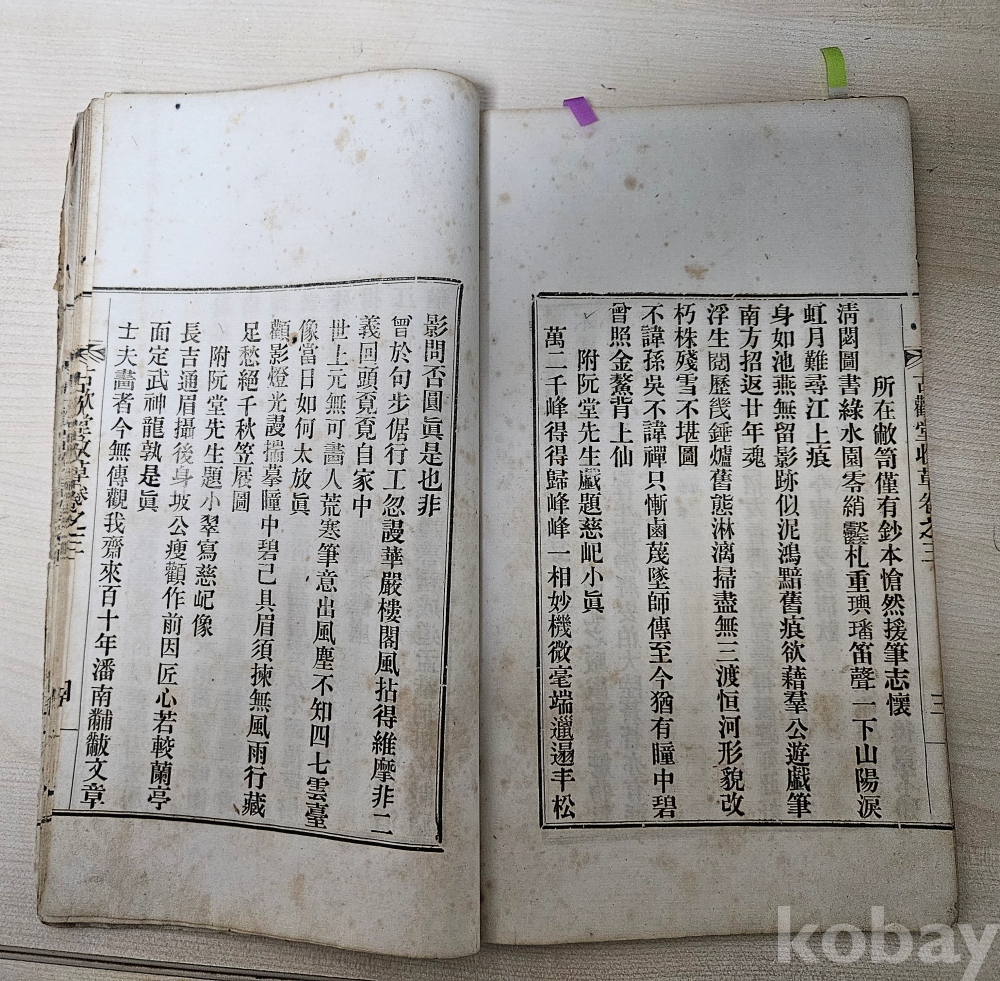 所在敝笥僅有鈔本愴然援筆志懷
淸閟圖書綠水園零綃斷札重璵璠笛聲一下山陽淚
虹月難尋江上痕
身如池燕無留影跡似泥鴻黯舊痕欲藉羣公遊戱筆
南方招返廿年魂
浮生閱歷幾錘爐舊態淋漓掃盡無三渡恒河形貌改
朽株殘雪不堪圖
不諱孫吳不諱禪只慚鹵莽墜師傳至今猶有瞳中碧
曾照金鰲背上仙
附阮堂先生戱題慈屺小眞
萬二千峰得得歸峰峰一相妙機微毫端邋遢丰松
古歡堂收草卷之三
三
影問否圓眞是也非
曾於句步倨行工忽謾華嚴樓閣風拈得維摩非二
義回頭覔覔自家中
世上元無可畵人荒寒筆意出風塵不知四七雲臺
像當日如何太放眞
顴影燈光謾揣摹瞳中碧己具眉須揀無風雨行藏
足愁絕千秋笠屐圖
附阮堂先生題小翠寫慈屺像
長吉通眉攝後身坡公瘦顴作前因匠心若較蘭亭
面定武神龍孰是眞
士夫畵者今無傳觀我齋來百十年潘南黼黻文章
古歡堂收草卷之三
kobay